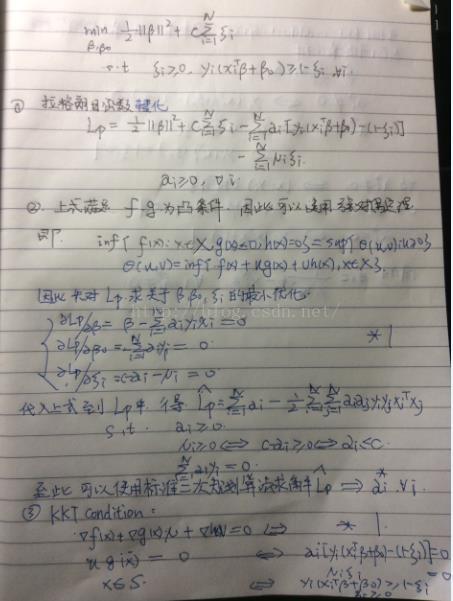 min β,β₀ ½||β||² + C Σᵢ₌₁ᴺ ξᵢ
s.t ξᵢ≥0, yᵢ(xᵢᵀβ+β₀)≥1-ξᵢ ∀i
① 拉格朗日函数转化
Lp = ½||β||² + C Σᵢ₌₁ᴺ ξᵢ - Σᵢ₌₁ᴺ aᵢ[yᵢ(xᵢᵀβ+β₀)-(1-ξᵢ)]
- Σᵢ₌₁ᴺ μᵢξᵢ
aᵢ≥0, ∀i
②. 上式满足 f.g 为凸条件. 因此可以使用强对偶定理
即. inf{f(x): x∈X, g(x)≤0, h(x)=0} = sup{θ(u,v): u≥0}
θ(u,v)=inf{f(x)+ug(x)+vh(x), x∈X}.
因此 先对 Lp 求关于 β β₀, ξᵢ 的最小优化.
http://blog.csdn.net/
∂Lp/∂β = β - Σᵢ₌₁ᴺ aᵢyᵢxᵢ = 0
∂Lp/∂β₀ = -Σᵢ₌₁ᴺ aᵢyᵢ = 0 * 1
∂Lp/∂ξᵢ = C-aᵢ-μᵢ = 0
代入上式到 Lp中. 得 L̂p = Σᵢ₌₁ᴺ aᵢ - ½ Σᵢ₌₁ᴺ Σⱼ₌₁ᴺ aᵢaⱼyᵢyⱼxᵢᵀxⱼ
s.t. aᵢ≥0.
μᵢ≥0 ⟺ C-aᵢ≥0 ⟺ aᵢ≤C.
Σᵢ₌₁ᴺ aᵢyᵢ = 0.
至此 可以使用标准二次规划算法求解 L̂p ⟹ aᵢ* ∀i.
③ KKT condition:
∇f(x)+∇g(x)u+∇h(x)v=0 ⟺ * 1.
u g(x) = 0 ⟺ aᵢ[yᵢ(xᵢᵀβ+β₀)-(1-ξᵢ)]=0
μᵢξᵢ = 0
x∈S. ⟺ yᵢ(xᵢᵀβ+β₀)≥1-ξᵢ
ξᵢ≥0